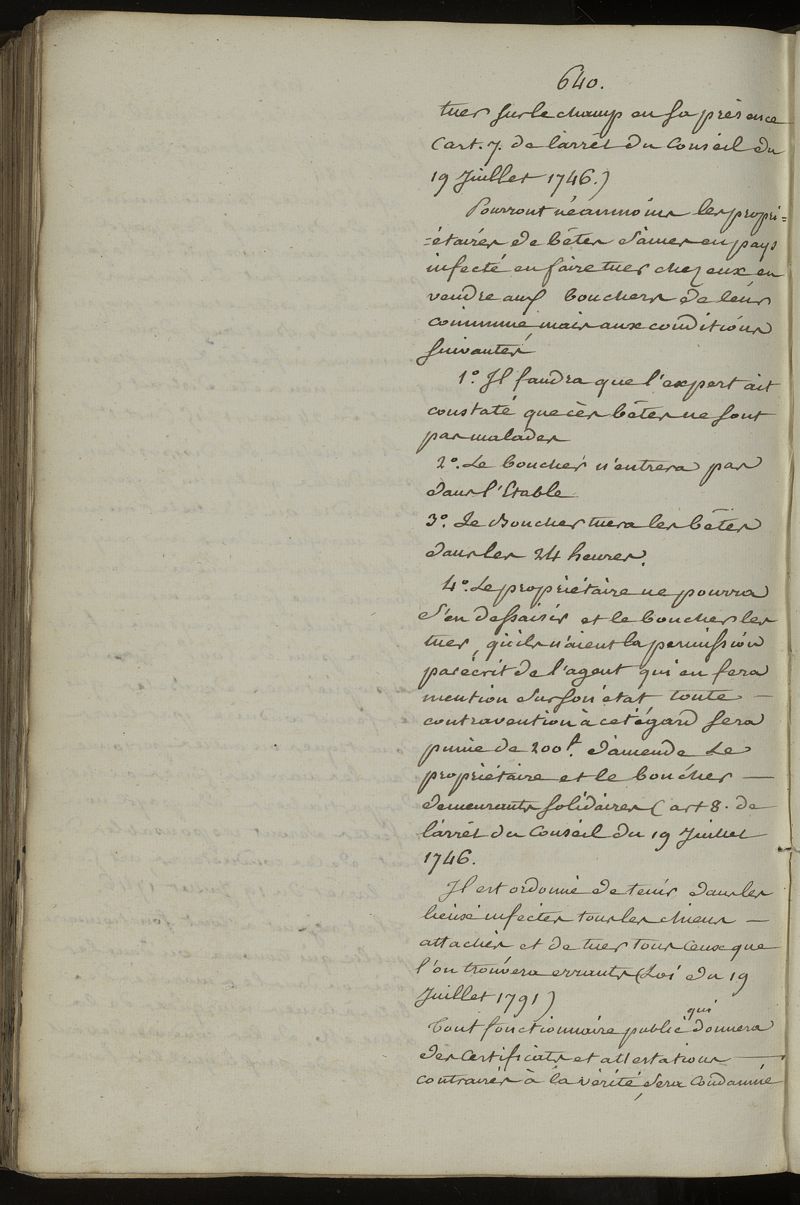 640.
tuer sur le champ en sa présence
(art. 7. de l'arrêt du Conseil du
19 Juillet 1746.)
Pourront néanmoins les propri=
=étaires de bêtes saines en pays
infecté en faire tuer chez eux en
vendre aux bouchers de leur
commune, mais aux conditions
suivantes
1.° Il faudra que l'expert ait
constaté que ces bêtes ne sont
pas malades
2.° Le boucher n'entrera pas
dans l'Etable
3.° Le Boucher tuera les bêtes
dans les 24 heures.
4.° Le propriétaire ne pourra
s'en dessaisir et le boucher les
tuer, qu'ils n'aient la permission
par écrit de l'agent qui en fera
mention sur son état toute —
contravention à cet égard sera
punie de 200₶. d'amende Le
propriétaire et le boucher —
demeurants solidaires (art 8. de
l'arrêt du Conseil du 19 Juillet
1746.
Il est ordonné de tenir dans les
lieux infectés tous les chiens —
attachés et de tuer tous ceux que
l'on trouvera errants (Loi du 19
Juillet 1791)
Tout fonctionnaire public qui donnera
des certificats et attestations —
contraires à la vérité, sera condamné